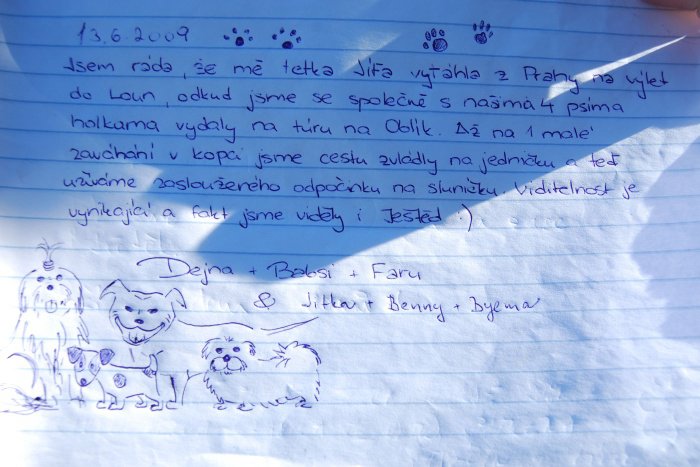 13.6.2009
Jsem ráda, že mě tetka Jíťa vytáhla z Prahy na výlet
do Loun, odkud jsme se společně s našima 4 psíma
holkama vydaly na túru na Oblík. Až na 1 malé
zaváhání v kopci jsme cestu zvládly na jedničku a teď
užíváme zaslouženého odpočinku na sluníčku. Viditelnost je
vynikající a fakt jsme viděly i Ještěd :)
Dejna + Babsi + Faru
& Jitka + Benny + Byema